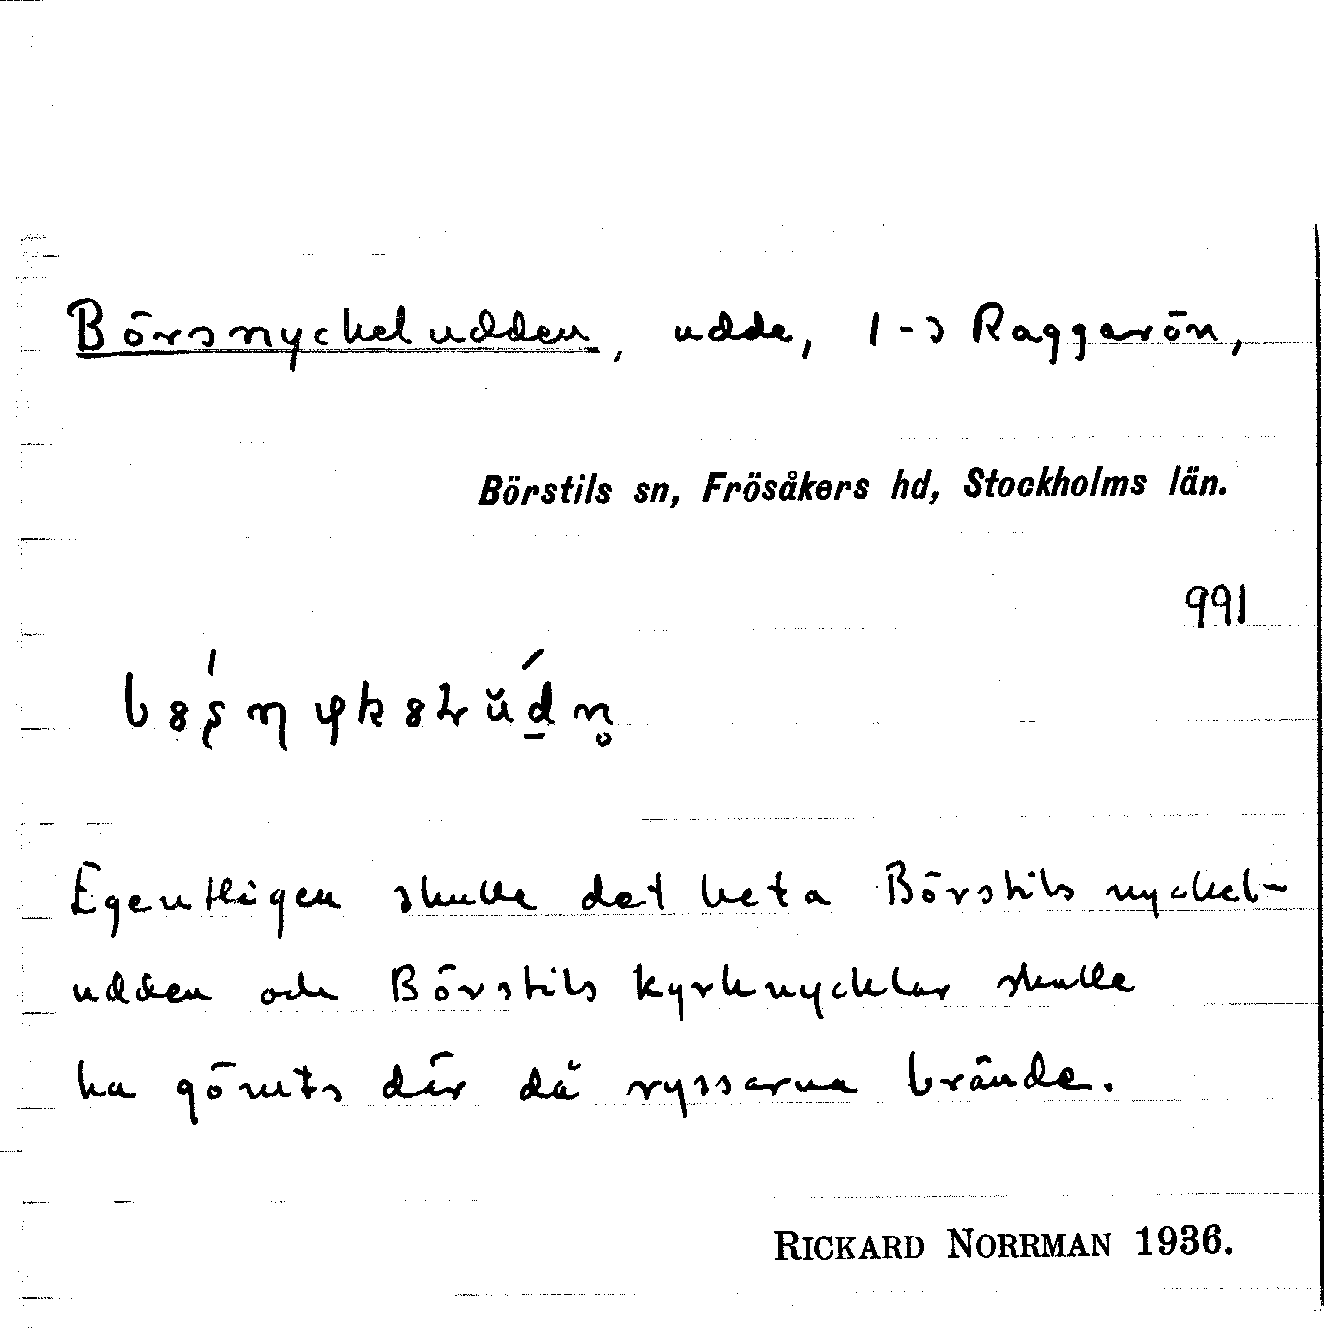 Börsnyckeludden, udde, 1-3 Raggarön,
Börstils sn, Frösåkers hd, Stockholms län.
991
Egentligen skulle det heta Börstils nyckel-
udden och Börstils kyrknycklar skulle
ha gömts där då ryssarna brände.
RICKARD NORRMAN 1936.